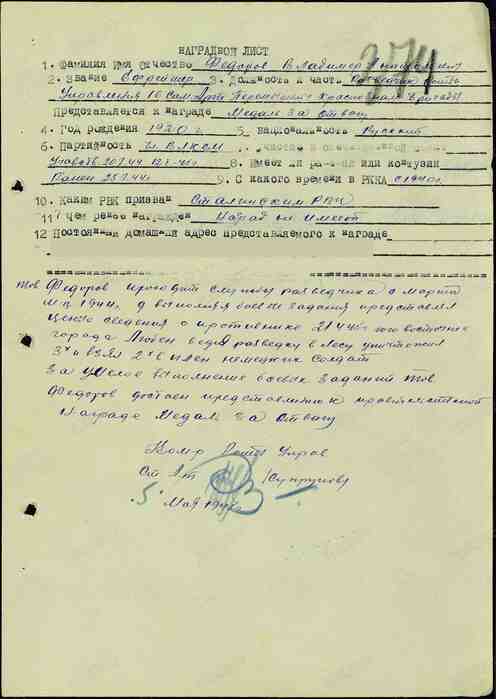 НАГРАДНОЙ ЛИСТ
374
1. Фамилия Имя Отчество Федоров Владимир
2. Звание Ефрейтор 3. Должность и часть Разведчик роты
Управления 16 Сам Арт Краснознам Бригады
Представляется к награде Медаль За Отвагу
4. Год рождения 1920 г. 5. Национальность Русский
6. Партийность чл. ВЛКСМ
8. Имеет ли ранения или контузии
Ранен 9. С какого времени в РККА с 1940 г.
10. Каким РВК призван Сталинским РВК
11. Чем ранее награжден Наград не имеет
12 Постоянный домашний адрес представляемого к награде
Тов Федоров проходит службу разведчика с марта
М-ца 1944, выполняя боевые задания представлял
ценные сведения о противнике восточнее
города Любен ведя разведку в лесу уничтожил
3х и взял 2х в плен немецких солдат
За умелое выполнение боевых заданий тов
Федоров достоин представления к правительственной
Награде Медаль За Отвагу
Комр Роты Управ
Ст Лт
5 Мая